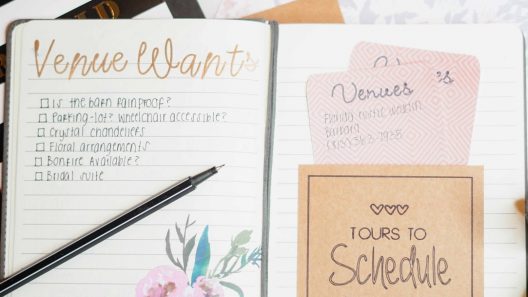 Venue Wants
Is the barn rainproof?
Parking-lot? wheelchair accessible?
Crystal chandeliers
Floral arrangements
Bonfire Available?
Bridal suite
Venues
Barbara
TOURS TO
Schedule